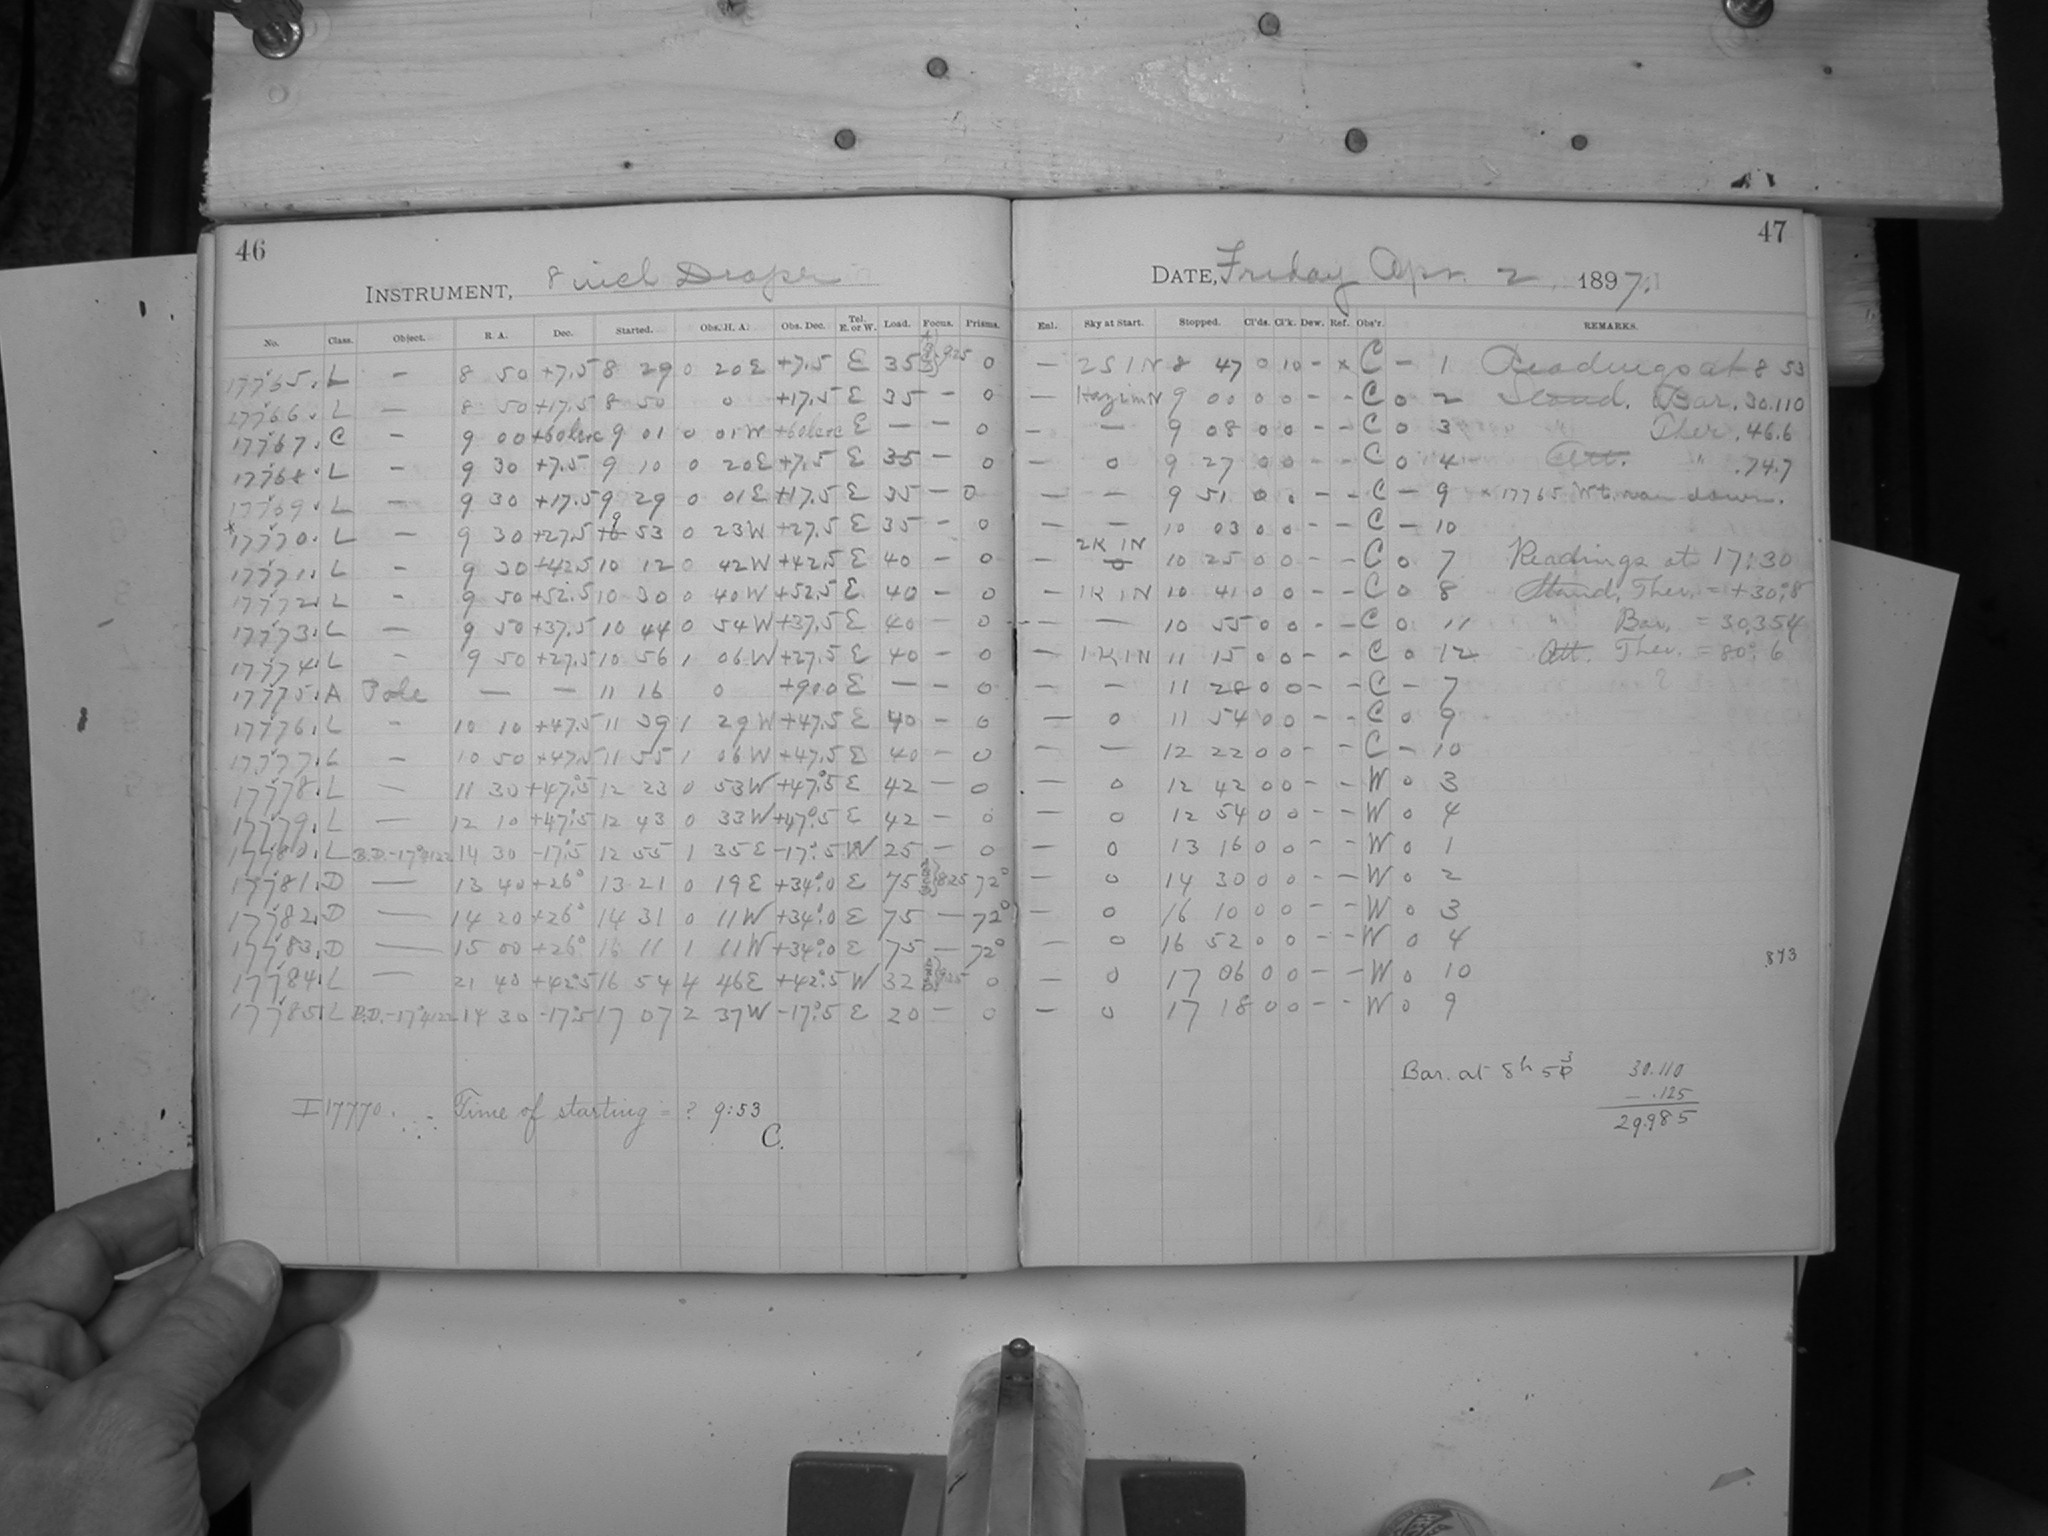 46
INSTRUMENT, 8 inch Draper
No. Class. Object. R. A. Dec. Started. Obs. H. A. Obs. Dec. Tel. E. or W. Load. Focus. Prisms.
17765. L - 8 50 +7.5 8 29 0 20E +7.5 E 35 925 0
17766. L - 8 50 +17.5 8 50 0 +17.5 E 35 - 0
17767. C - 9 00 9 01 0 01W E - - 0
17768. L - 9 30 +7.5 9 10 0 20E +7.5 E 35 - 0
17769. L - 9 30 +17.5 9 29 0 01E +17.5 E 35 - 0
*17770. L - 9 30 +27.5 9 53 0 23W +27.5 E 35 - 0
17771. L - 9 30 +42.5 10 12 0 42W +42.5 E 40 - 0
17772. L - 9 50 +52.5 10 30 0 40W +52.5 E 40 - 0
17773. L - 9 50 +37.5 10 44 0 54W +37.5 E 40 - 0
17774. L - 9 50 +27.5 10 56 1 06W +27.5 E 40 - 0
17775. A Pole - - 11 16 0 +90.0 E - - 0
17776. L - 10 10 +47.5 11 39 1 29W +47.5 E 40 - 0
17777. L - 10 50 +47.5 11 55 1 06W +47.5 E 40 - 0
17778. L - 11 30 +47°.5 12 23 0 53W +47°.5 E 42 - 0
17779. L - 12 10 +47°.5 12 43 0 33W +47°.5 E 42 - 0
17780. L B.D.-17°4122 14 30 -17°.5 12 55 1 35E -17°.5 W 25 - 0
17781. D - 13 40 +26° 13 21 0 19E +34°.0 E 75 825 72°
17782. D - 14 20 +26° 14 31 0 11W +34°.0 E 75 - 72°
17783. D - 15 00 +26° 16 11 1 11W +34°.0 E 75 - 72°
17784. L - 21 40 +42°.5 16 54 4 46E +42°.5 W 32 925 0
17785. L B.D.-17°4122 14 30 -17°.5 17 07 2 37W -17°.5 E 20 - 0
I 17770. - Time of starting = ? 9:53
C.
47
DATE, Friday Apr. 2, 1897.
Enl. Sky at Start. Stopped. Cl'ds. Cl'k. Dew. Ref. Obs'r. REMARKS.
- 2S 1N 8 47 0 10 - x C - 1 Readings at 8 53
- Haz in N 9 00 0 0 - - C 0 2 Stand. Bar. 30.110
- - 9 08 0 0 - - C 0 3 " Ther. 46.6
- 0 9 27 0 0 - - C 0 4 Att. " .74.7
- - 9 51 0 . - - C - 9 x 17765 Wt. ran down.
- - 10 03 0 0 - - C - 10
- 2K 1N 10 25 0 0 - - C 0 7 Readings at 17:30
- 1K 1N 10 41 0 0 - - C 0 8 Stand. Ther. = +30°.8
- - 10 55 0 0 - - C 0 11 " Bar. = 30.354
- 1K 1N 11 15 0 0 - - C 0 12 Att. Ther. = 80°.6
- - 11 28 0 0 - - C - 7
- 0 11 54 0 0 - - C 0 9
- - 12 22 0 0 - - C - 10
- 0 12 42 0 0 - - W 0 3
- 0 12 54 0 0 - - W 0 4
- 0 13 16 0 0 - - W 0 1
- 0 14 30 0 0 - - W 0 2
- 0 16 10 0 0 - - W 0 3
- 0 16 52 0 0 - - W 0 4
.873
- 0 17 06 0 0 - - W 0 10
- 0 17 18 0 0 - - W 0 9
Bar. at 8h 53 30.110
- .125
29.985